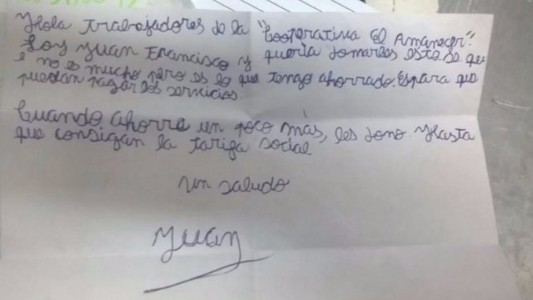 Hola trabajadores de la "Cooperativa El Amanecer".
Soy Juan Francisco y queria donarles este se qu
e no es mucho pero es lo que tengo ahorrado. Es para que
puedan pagar los servicios.
Cuando ahorre un poco más, les dono. Hasta
que consigan la tarifa social
un saludo
Juan